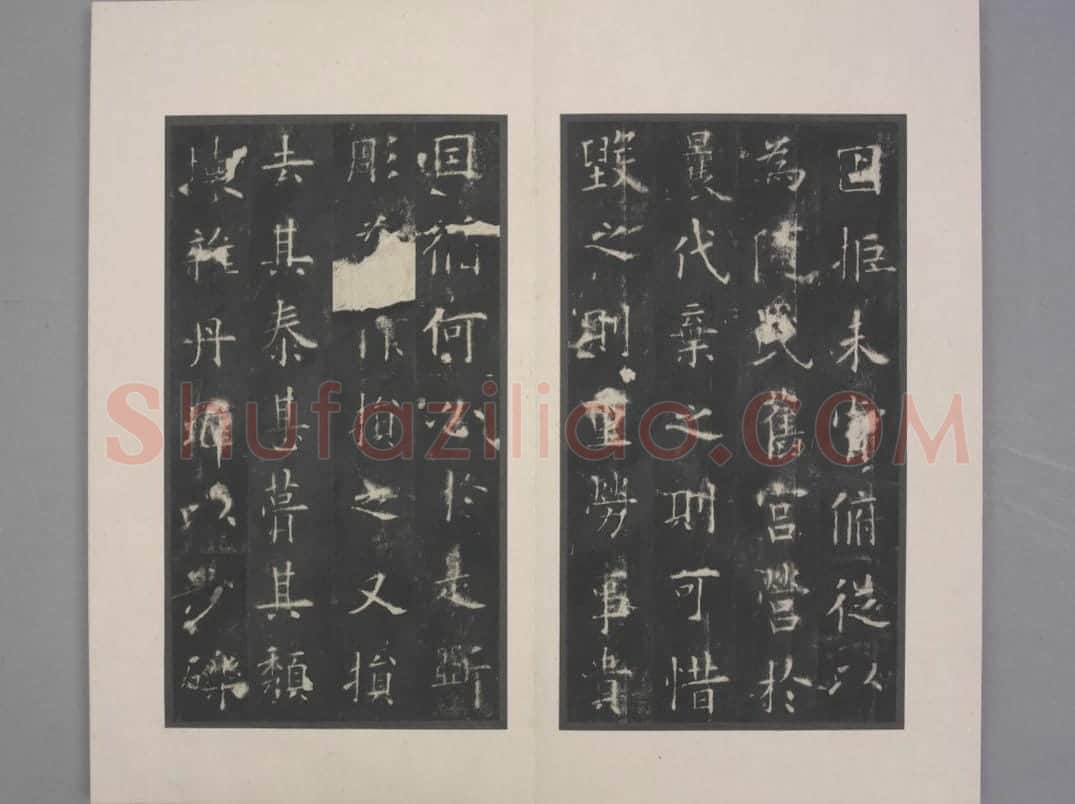 固拒未肯俯從以
為氏舊宮營於
曩代棄之則可惜
毀之則重勞事貴
因循何必於是斲
彫為損之又損
去其泰甚葺其頹
壞雜丹墀以沙礫
Shufaziliao.COM